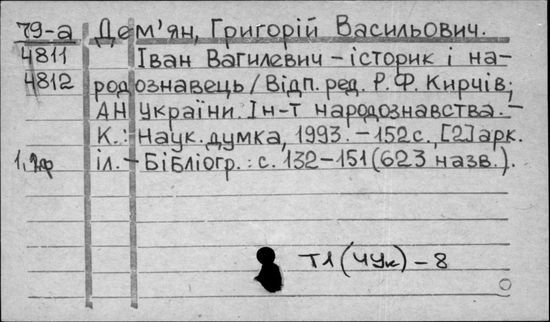 79-а Дем'ян, Григорій Васильович.
4811 Іван Вагилевич – історик і на-
4812 родознавець / Відп. ред. Р. Ф. Кирчів;
АН України. Ін-т народознавства. –
К.: Наук. думка, 1993. – 152с., [2] арк.
іл. – Бібліогр.: с. 132–151 (623 назв.).
Т1(4Ук)-8